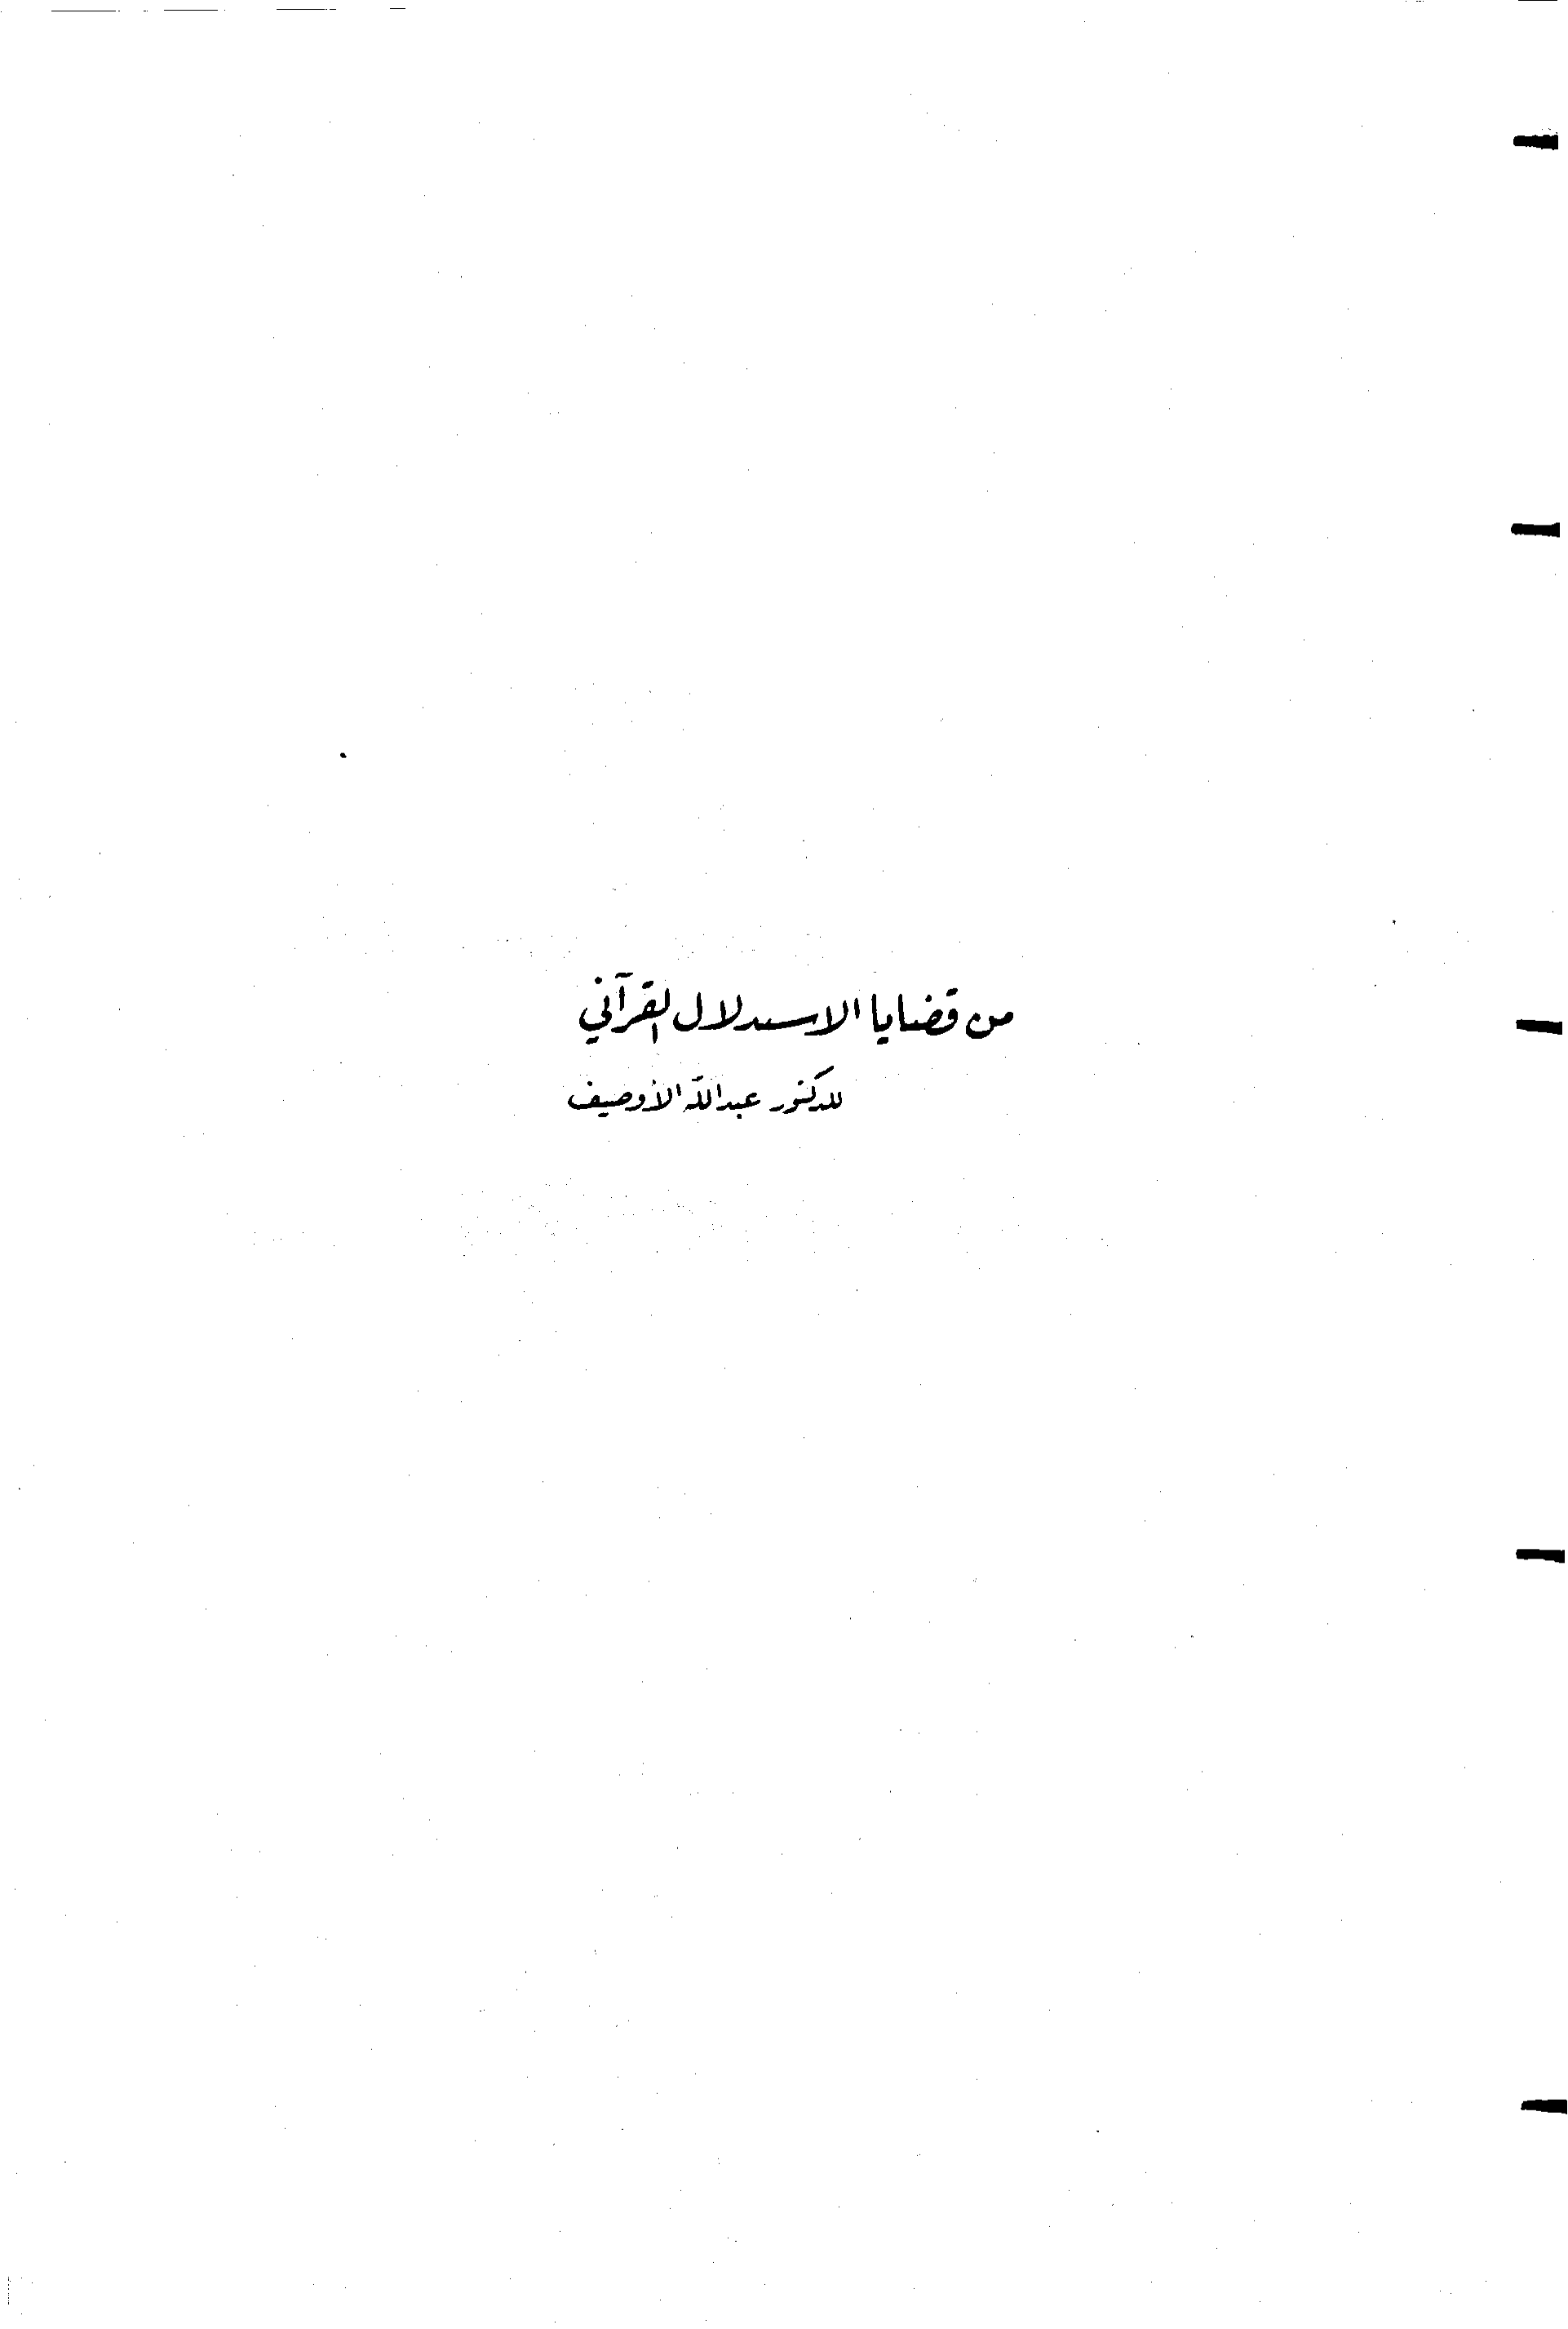 من قضايا الاستدلال القرآني
للدكتور عبدالله الأوصيف